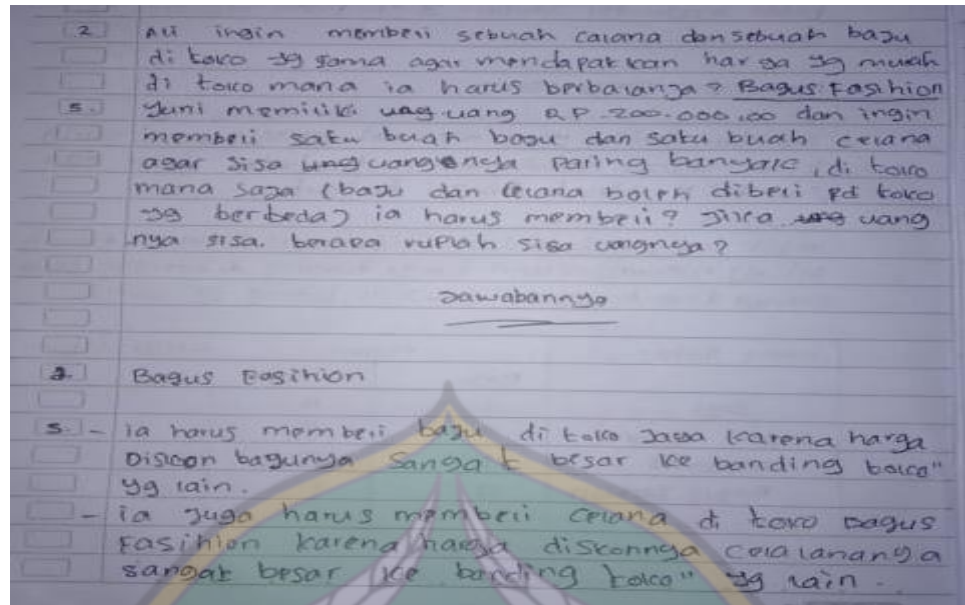 2 Ali ingin membeli sebuah celana dan sebuah baju
di toko yg sama agar mendapatkan harga yg murah
di toko mana ia harus berbelanja? Bagus Fashion
5. Yuni memiliki uag uang RP. 200.000,00 dan ingin
membeli satu buah baju dan satu buah celana
agar sisa ung uangenya paling banyak, di toko
mana saja (baju dan celana boleh dibeli pd toko
yg berbeda) ia harus membeli? Jika ung uang
nya sisa. berapa rupiah sisa uangnya?
Jawabannya
2. Bagus Fasihion
5. - ia harus membeli baju di toko Jaya karena harga
Diskon bagunya sangat besar ke banding toko"
yg lain.
- ia juga harus membeli celana di toko bagus
Fasihion karena harga diskonnya celalananya
sangat besar ke banding toko" yg lain.